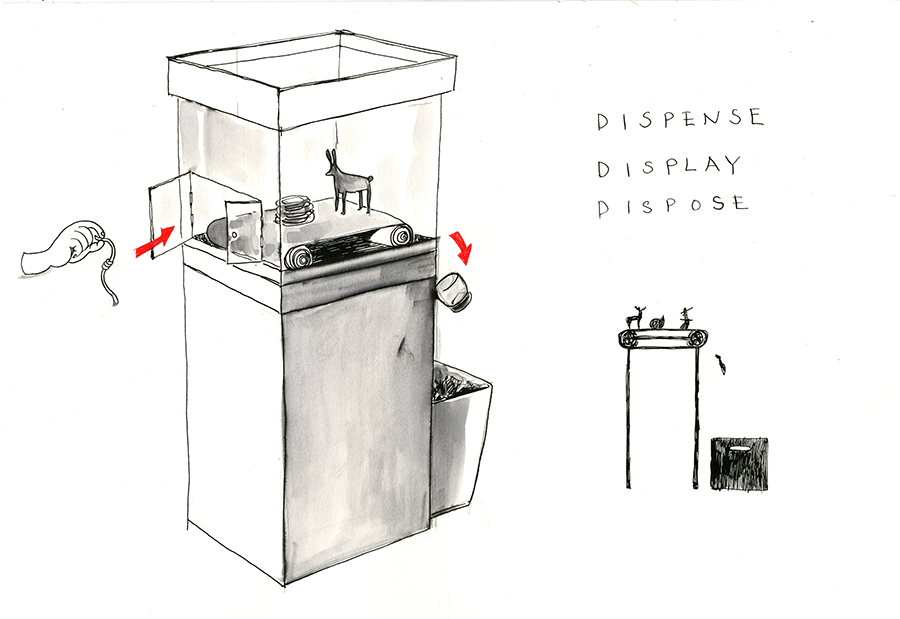 DISPENSE
DISPLAY
DISPOSE